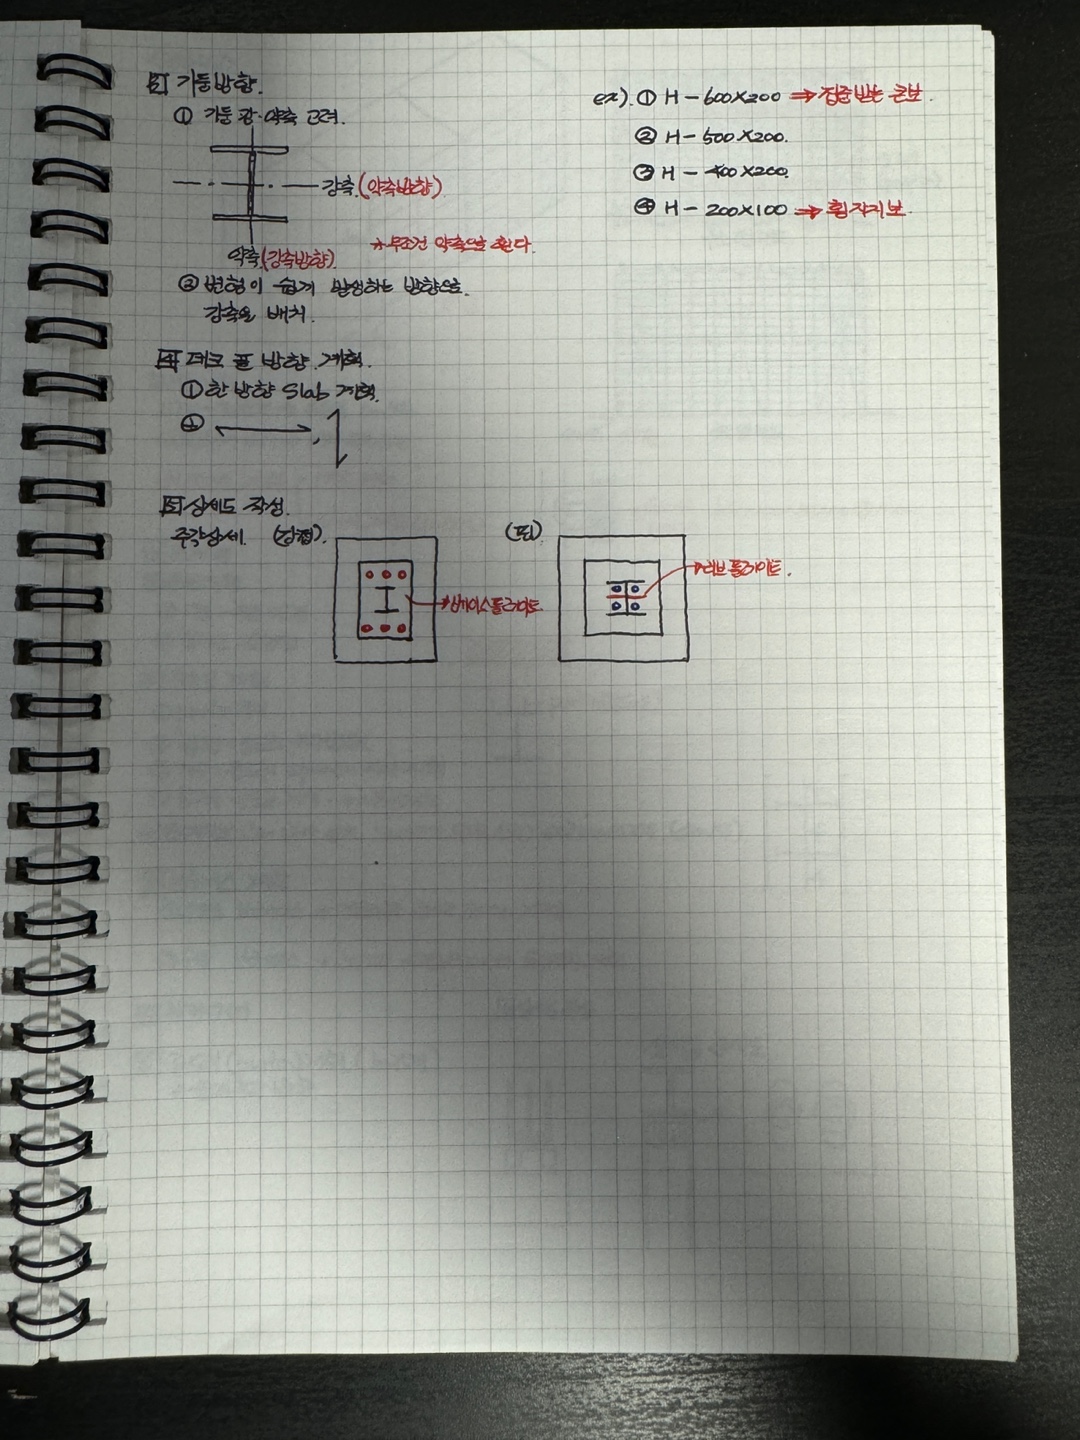 3 기둥방향.
① 기둥 강·약축 고려.
강축.(약축방향)
약축(강축방향)
*무조건 약축으로 휜다.
② 변형이 쉽게 발생하는 방향으로
강축을 배치.
4 데크 골 방향 계획.
① 한 방향 Slab 계획.
②
5 상세도 작성.
주각상세. (강접).
→베이스플레이트.
(핀)
→리브 플레이트.
ex). ① H-600X200 ⇒ 집중 받는 큰보.
② H-500X200.
③ H-400X200.
④ H-200X100 ⇒ 횡지지보.